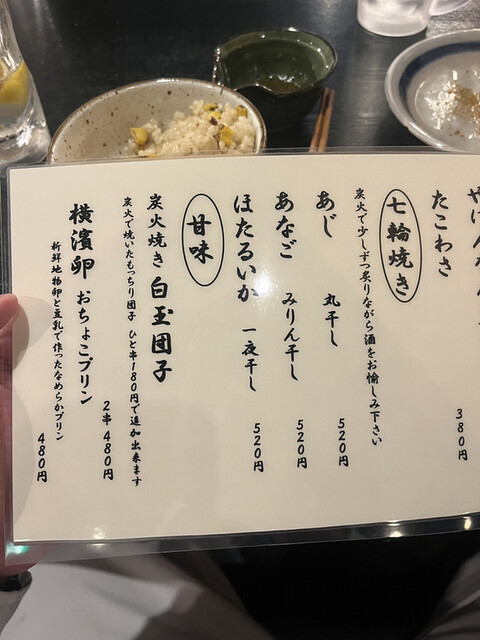 たこわさ
380円
七輪焼き
炭火で少しずつ炙りながら酒をお愉しみ下さい
あじ 丸干し
520円
あなご みりん干し
520円
ほたるいか 一夜干し
520円
甘味
炭火焼き 白玉団子
2串480円
炭火で焼いたもっちり団子 ひと串180円で追加出来ます
横濱卵 おちょこプリン
新鮮地物卵と豆乳で作ったなめらかプリン
480円